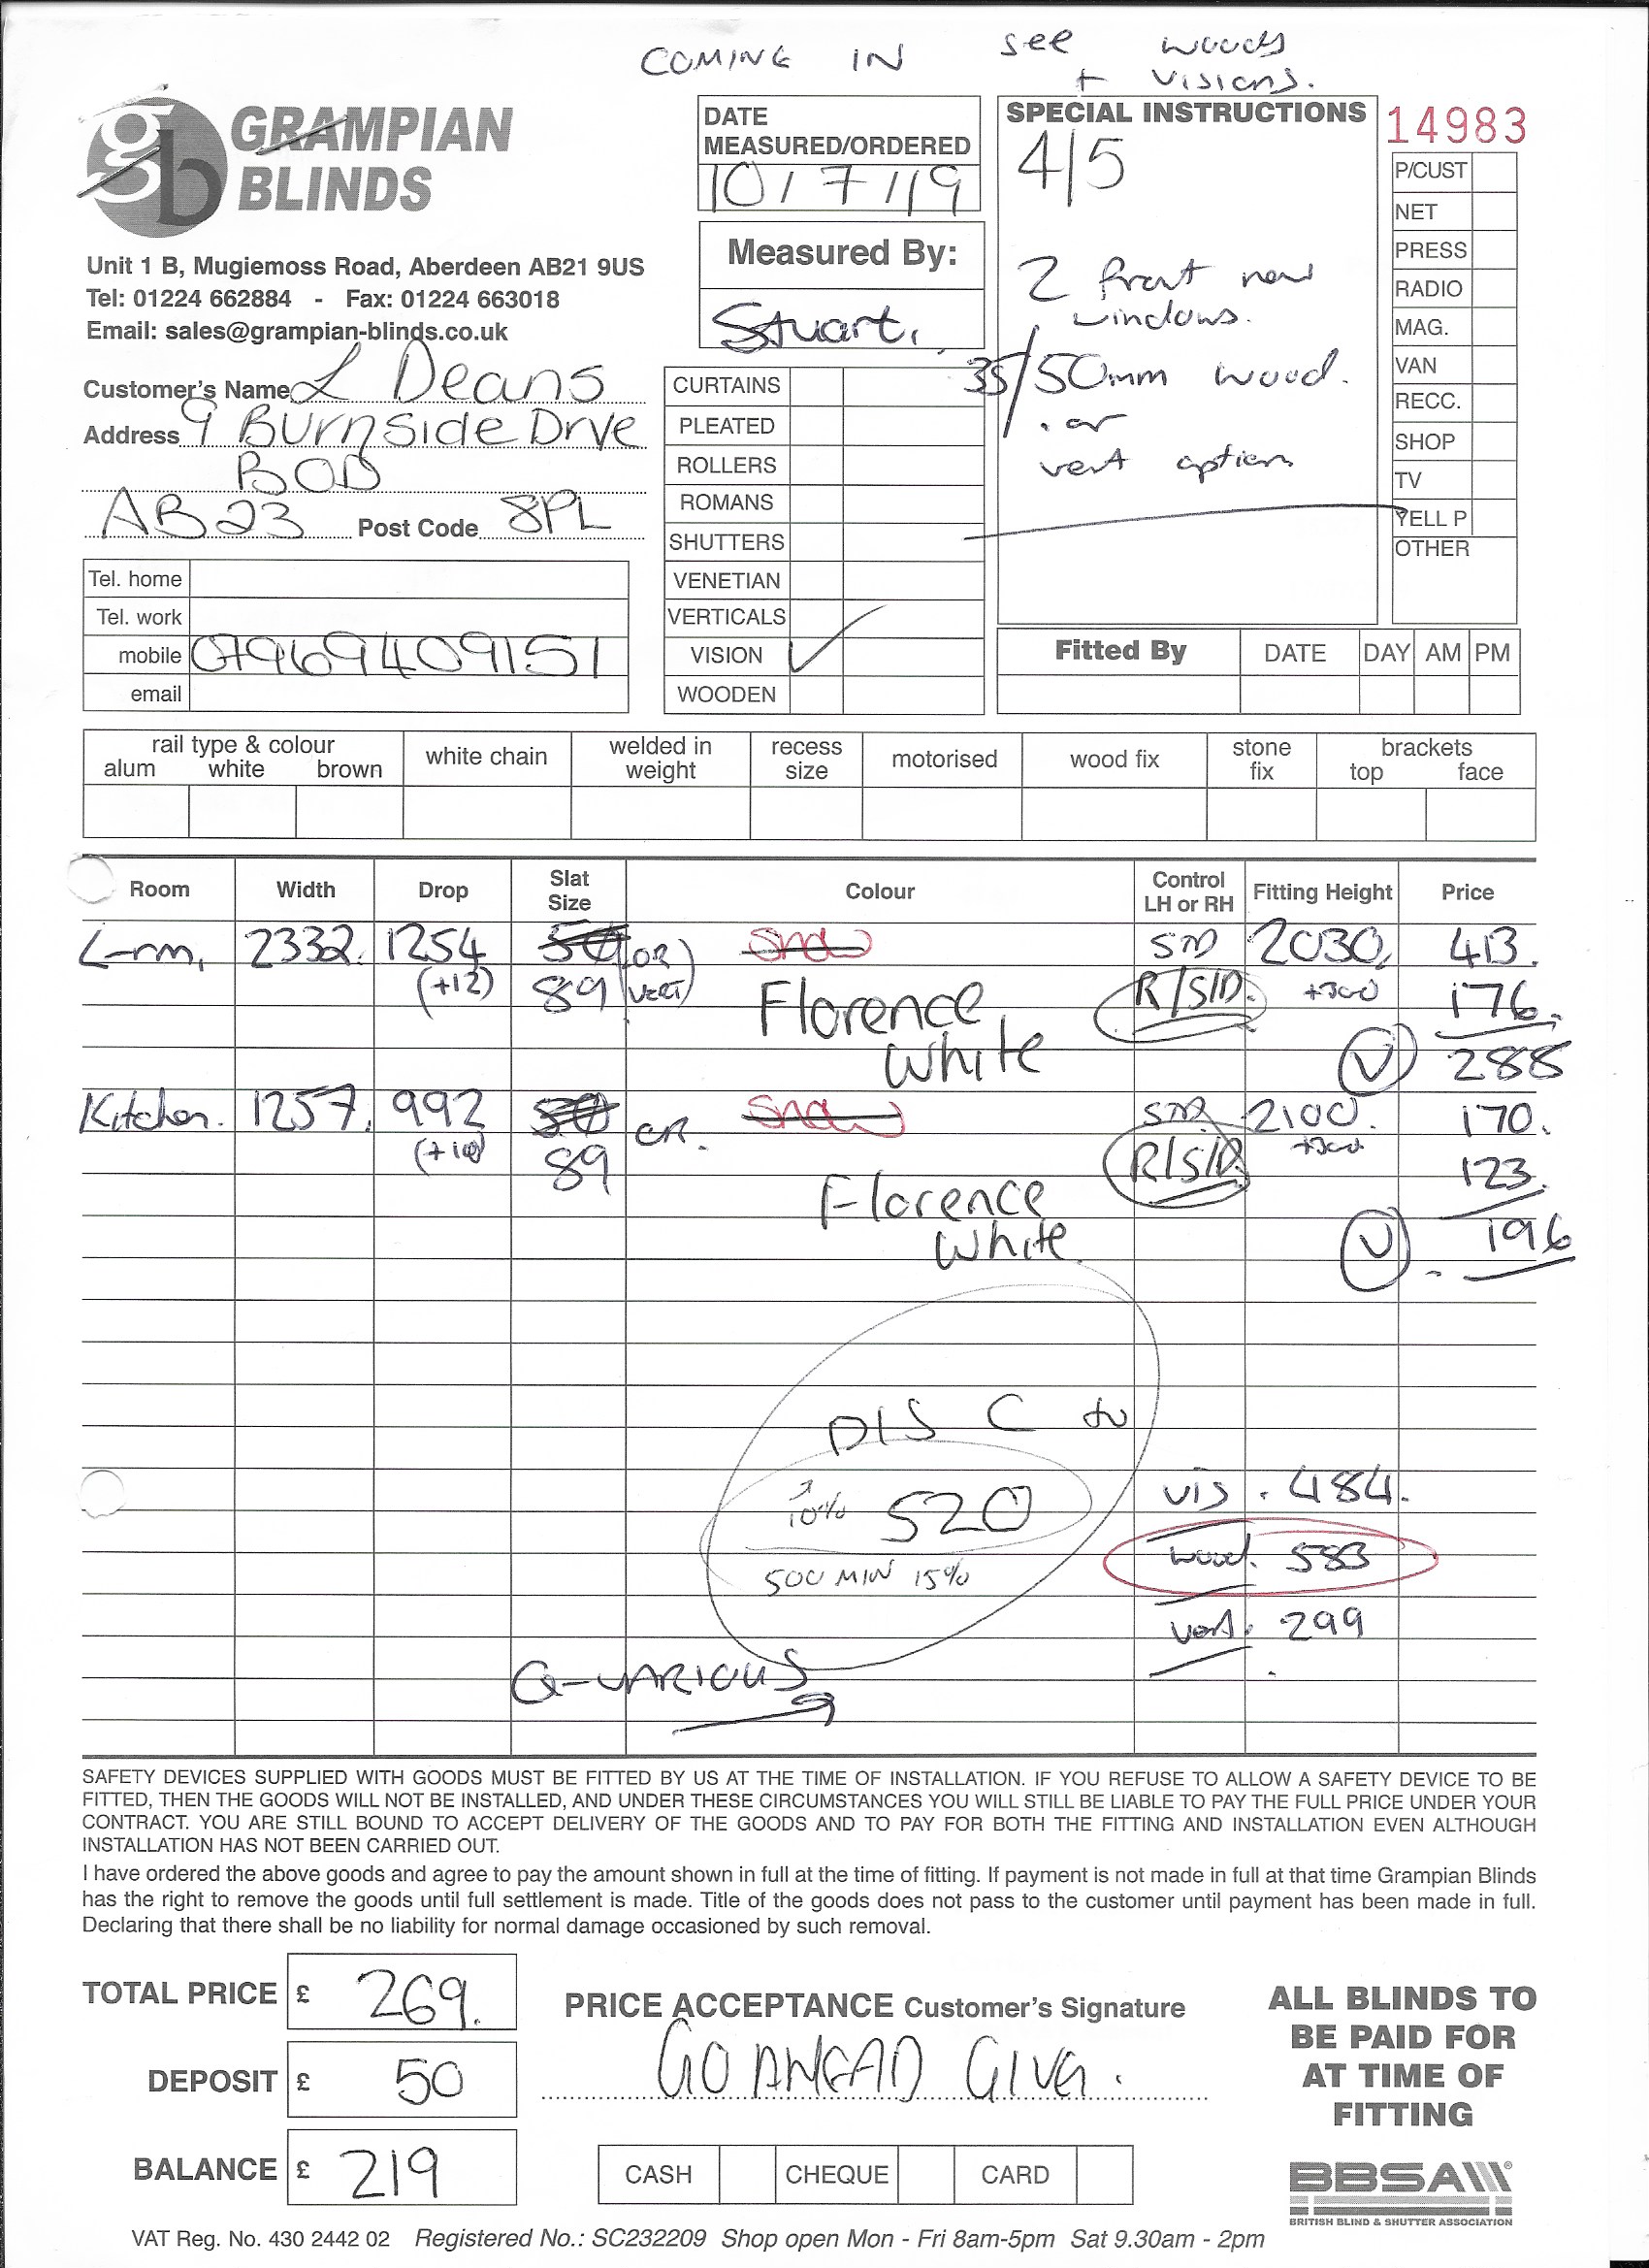 COMING IN see woods
+ visions.
GRAMPIAN
BLINDS
Unit 1 B, Mugiemoss Road, Aberdeen AB21 9US
Tel: 01224 662884 - Fax: 01224 663018
Email: sales@grampian-blinds.co.uk
Customer's Name L Deans
Address 9 Burnside Drve
BOD
AB23 Post Code 8PL
Tel. home
Tel. work
mobile 07969409151
email
DATE
MEASURED/ORDERED
10/7/19
Measured By:
Stuart.
CURTAINS
PLEATED
ROLLERS
ROMANS
SHUTTERS
VENETIAN
VERTICALS
VISION ✓
WOODEN
SPECIAL INSTRUCTIONS
4/5
2 front new
windows.
35/50mm wood.
. or
vert option
14983
P/CUST
NET
PRESS
RADIO
MAG.
VAN
RECC.
SHOP
TV
YELL P
OTHER
Fitted By DATE DAY AM PM
rail type & colour white chain welded in weight recess size motorised wood fix stone fix brackets
alum white brown top face
Room Width Drop Slat Size Colour Control LH or RH Fitting Height Price
L-rm, 2332. 1254 50 (OR) Snow STD 2030, 413.
(+12) 89 VERT) Florence R/S/D. +300 176.
White V 288
Kitchen. 1257. 992 50 OR. Snow STD 2100. 170.
(+10) 89 R/S/D. +300 123.
Florence
White V 196
DIS C to
10% 520 vis. 484.
500 MIN 15% wood. 583
vert. 299
Q-VARIOUS
SAFETY DEVICES SUPPLIED WITH GOODS MUST BE FITTED BY US AT THE TIME OF INSTALLATION. IF YOU REFUSE TO ALLOW A SAFETY DEVICE TO BE
FITTED, THEN THE GOODS WILL NOT BE INSTALLED, AND UNDER THESE CIRCUMSTANCES YOU WILL STILL BE LIABLE TO PAY THE FULL PRICE UNDER YOUR
CONTRACT. YOU ARE STILL BOUND TO ACCEPT DELIVERY OF THE GOODS AND TO PAY FOR BOTH THE FITTING AND INSTALLATION EVEN ALTHOUGH
INSTALLATION HAS NOT BEEN CARRIED OUT.
I have ordered the above goods and agree to pay the amount shown in full at the time of fitting. If payment is not made in full at that time Grampian Blinds
has the right to remove the goods until full settlement is made. Title of the goods does not pass to the customer until payment has been made in full.
Declaring that there shall be no liability for normal damage occasioned by such removal.
TOTAL PRICE £ 269.
DEPOSIT £ 50
BALANCE £ 219
PRICE ACCEPTANCE Customer's Signature
GO AHEAD GIVN.
CASH CHEQUE CARD
ALL BLINDS TO
BE PAID FOR
AT TIME OF
FITTING
BBSA
BRITISH BLIND & SHUTTER ASSOCIATION
VAT Reg. No. 430 2442 02 Registered No.: SC232209 Shop open Mon - Fri 8am-5pm Sat 9.30am - 2pm